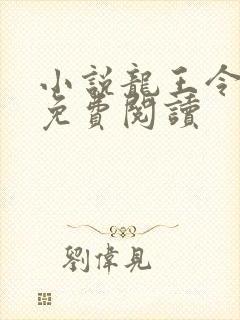 小説龍王令
免費閱讀
劉偉見